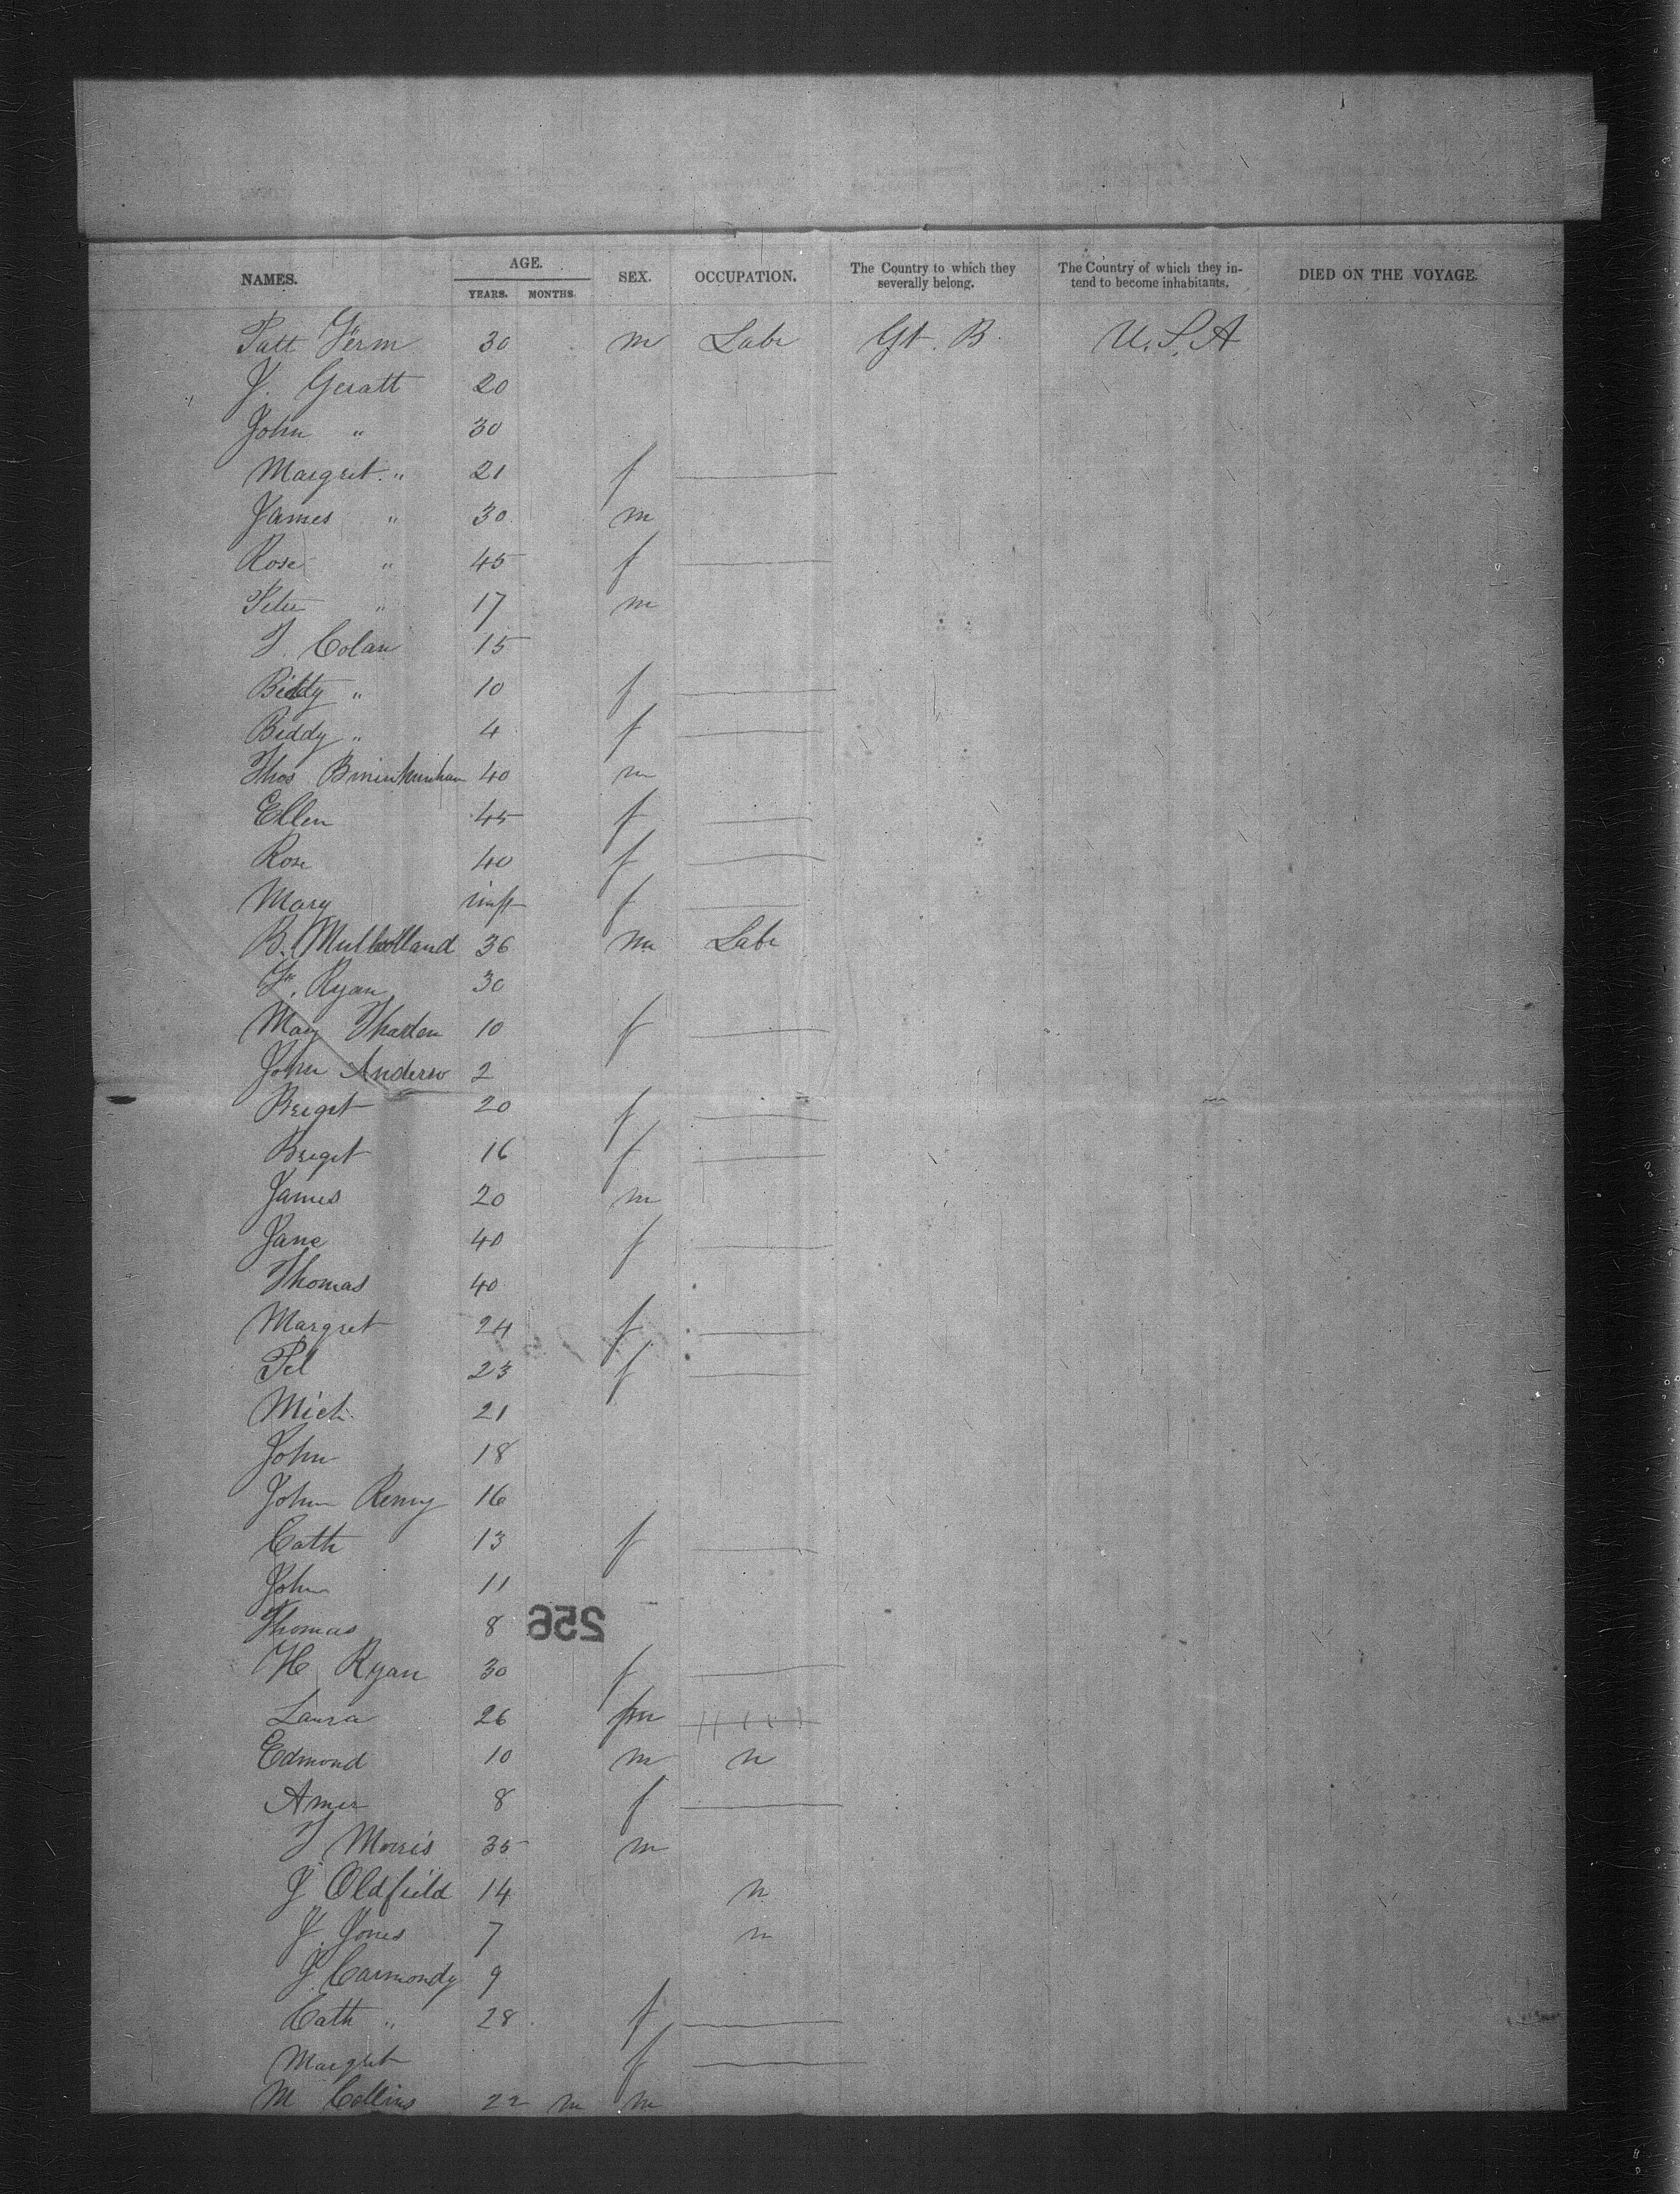 NAMES. AGE. SEX. OCCUPATION. The Country to which they severally belong. The Country of which they intend to become inhabitants. DIED ON THE VOYAGE.
YEARS. MONTHS.
Patt Ferm 30 m Labr Gt. B. U.S.A
J. Geratt 20
John " 30
Margret " 21 f
James " 30 m
Rose " 45 f
Peter " 17 m
T. Colan 15
Biddy " 10 f
Biddy " 4 f
Thos 40 m
Ellen 45 f
Rose 40 f
Mary f
B. Mulholland 36 m Labr
F. Ryan 30
Mary 10 f
John Anderso 2
Breget 20 f
Breget 16 f
James 20 m
Jane 40 f
Thomas 40
Margret 24 f
23 f
Mich. 21
John 18
John Remy 16
Cath 13 f
John 11
Thomas 8
256
H Ryan 30 f
Laura 26
Edmond 10 m n
8 f
T Morris 35 m
J Oldfield 14 n
J. Jones 7 n
J. Carmondy 9
Cath " 28 f
Margret f
M Collins 22 m m